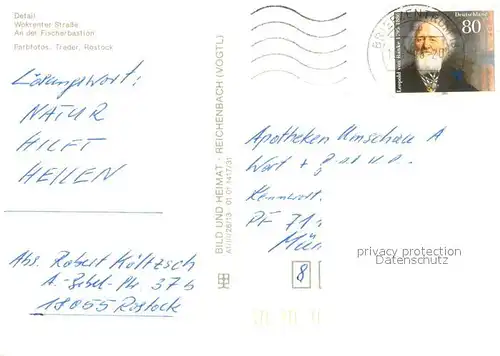 Detail
Wokrenter Straße
An der Fischerbastion
Farbfotos: Trader, Rostock
Lösungswort:
NATUR
HILFT
HEILEN
Abs. Robert Költzsch
A.-Bebel-Str. 37b
18055 Rostock
BILD UND HEIMAT · REICHENBACH (VOGTL)
01 01 1417/31
BRIEFZENTRUM
Leopold von Ranke 1795-1886
Deutschland
80
Apotheken Umschau A
Wort + 
Kennwort:
PF 71
Mün
8
privacy protection
Datenschutz